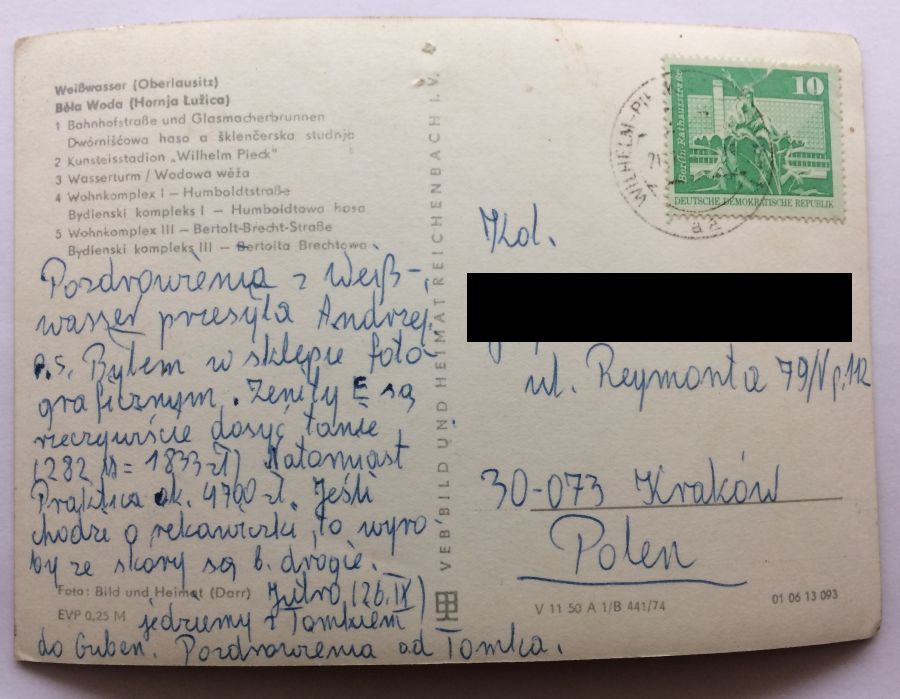 Weißwasser (Oberlausitz)
Běła Woda (Hornja Łužica)
1 Bahnhofstraße und Glasmacherbrunnen
Dwórnišćowa hasa a šklenčerska studnja
2 Kunsteisstadion „Wilhelm Pieck"
3 Wasserturm / Wodowa wěža
4 Wohnkomplex I – Humboldtstraße
Bydlenski kompleks I – Humboldtowa hasa
5 Wohnkomplex III – Bertolt-Brecht-Straße
Bydlenski kompleks III – Bertolta Brechtowa
Pozdrowienia z Weiß-
wasser przesyła Andrzej.
P.S. Byłem w sklepie foto-
graficznym. Zenity E są
rzeczywiście dosyć tanie
(282 M = 1833 zł) Natomiast
Praktica ok. 4700 zł. Jeśli
chodzi o rękawiczki, to wyro-
by ze skóry są b. drogie.
Jutro (26.IX)
jedziemy z Tomkiem
do Guben. Pozdrowienia od Tomka.
Foto: Bild und Heimat (Darr)
EVP 0,25 M
VEB BILD UND HEIMAT REICHENBACH I. V.
10
Berlin, Rathausstraße
DEUTSCHE DEMOKRATISCHE REPUBLIK
WILHELM-PI
a2
Kol.
ul. Reymonta 79/V p.112
30-073 Kraków
Polen
V 11 50 A 1/B 441/74
01 06 13 093